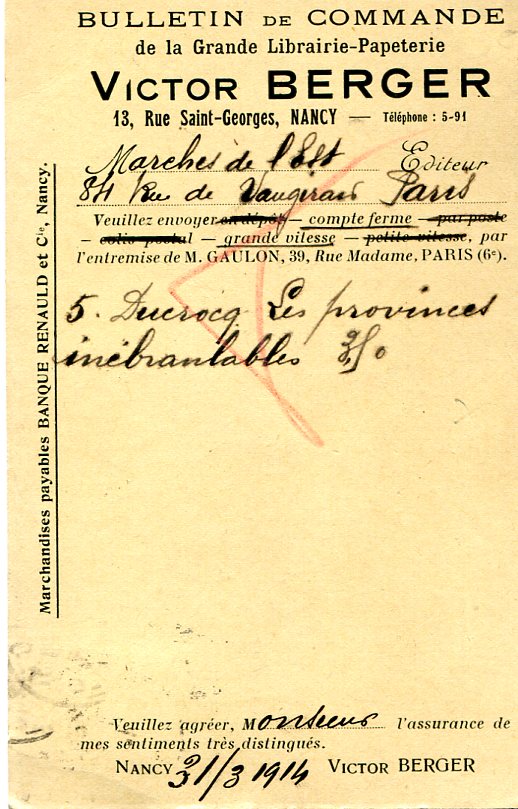 BULLETIN DE COMMANDE
de la Grande Librairie-Papeterie
VICTOR BERGER
13, Rue Saint-Georges, NANCY — Téléphone : 5-91
Marches de l'Est Editeur
84 Rue de Vaugirard Paris
Veuillez envoyer en dépôt — compte ferme — par poste
— colis postal — grande vitesse — petite vitesse, par
l'entremise de M. GAULON, 39, Rue Madame, PARIS (6e).
5. Ducrocq Les provinces
inébranlables 3,50
Marchandises payables BANQUE RENAULD et Cie, Nancy.
Veuillez agréer, Monsieur l'assurance de
mes sentiments très distingués.
NANCY 31/3 1914 VICTOR BERGER